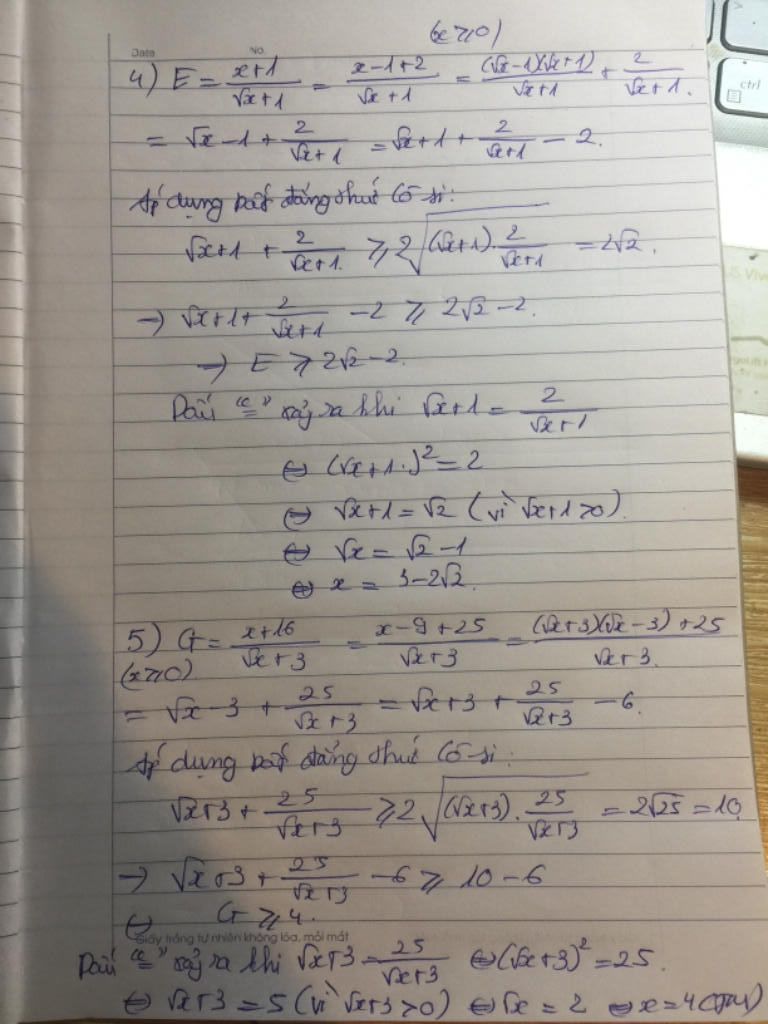 (x ⩾ 0)
Date No.
4) E = \frac{x+1}{√x+1} = \frac{x-1+2}{√x+1} = \frac{(√x-1)(√x+1)}{√x+1} + \frac{2}{√x+1}.
= √x - 1 + \frac{2}{√x+1} = √x+1 + \frac{2}{√x+1} - 2.
Áp dụng bất đẳng thức Cô-si:
√x+1 + \frac{2}{√x+1.} ⩾ 2\sqrt{(√x+1).\frac{2}{√x+1}} = 2√2.
→ √x+1+ \frac{2}{√x+1} - 2 ⩾ 2√2 - 2.
→ E ⩾ 2√2 - 2.
Dấu "=" xảy ra khi √x+1 = \frac{2}{√x+1}
⇔ (√x+1.)² = 2
⇔ √x+1 = √2 (vì √x+1 > 0).
⇔ √x = √2 - 1
⇔ x = 3-2√2.
5) G = \frac{x+16}{√x+3} = \frac{x-9+25}{√x+3} = \frac{(√x+3)(√x-3)+25}{√x+3.}
(x ⩾ 0)
= √x - 3 + \frac{25}{√x+3} = √x+3 + \frac{25}{√x+3} - 6.
Áp dụng bất đẳng thức Cô-si:
√x+3 + \frac{25}{√x+3} ⩾ 2\sqrt{(√x+3).\frac{25}{√x+3}} = 2√25 = 10.
→ √x+3 + \frac{25}{√x+3} - 6 ⩾ 10 - 6
⇔ G ⩾ 4.
Giấy trắng tự nhiên không lóa, mỏi mắt
Dấu "=" xảy ra khi √x+3 = \frac{25}{√x+3} ⇔ (√x+3)² = 25.
⇔ √x+3 = 5 (vì √x+3 > 0) ⇔ √x = 2 ⇔ x = 4
ctrl